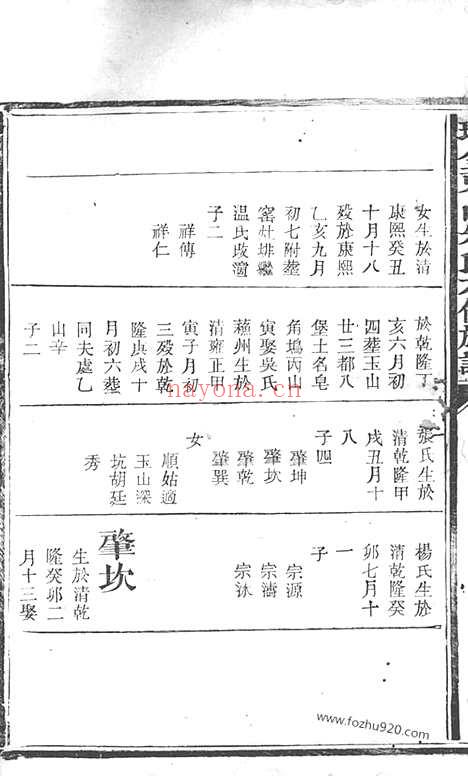 女生於清
康熙癸丑
十月十八
歿於康熙
乙亥九月
初七附葬
窰灶排繼
温氏改瀆
子二
祥傅
祥仁
於乾隆丁
亥六月初
四葬玉山
廿三都八
堡土名皂
角塢丙山
寅娶吳氏
蘓州生於
清雍正甲
寅子月初
三歿於乾
隆庚戌十
月初六葬
同夫處乙
山辛
子二
張氏生於
清乾隆甲
戌丑月十
八
子四
肇坤
肇坎
肇乾
肇巽
女
順姑適
玉山深
坑胡廷
秀
楊氏生於
清乾隆癸
卯七月十
一
子
宗源
宗濤
宗沐
肇坎
生於清乾
隆癸卯二
月十三娶
nayona.cn
www.fozhu920.com